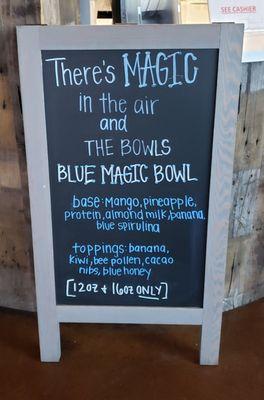 SEE CASHIER
There's MAGIC
in the air
and
THE BOWLS
BLUE MAGIC BOWL
base: Mango, pineapple,
protein, almond milk, banana,
blue spirulina
toppings: banana,
kiwi, bee pollen, cacao
nibs, blue honey
[12oz & 16oz ONLY]